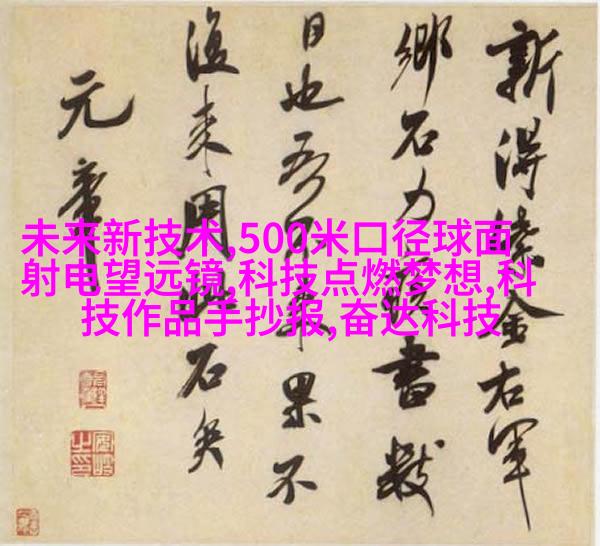 未来新技术,500米口径球面
射电望远镜,科技点燃梦想,科
技作品手抄报,奋达科技
新得紫金右軍
鄉石力疾書數
日也吾不来果不
復来用此石矣
元章